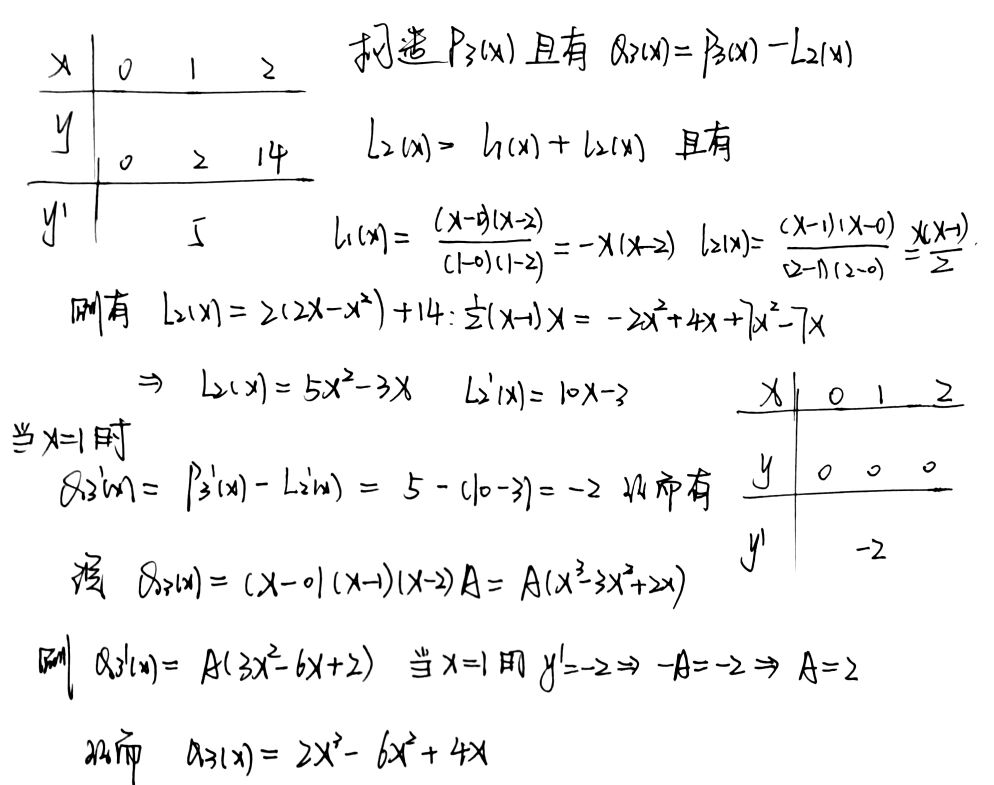 x 0 1 2
y 0 2 14
y' 5
构造 P₃(x) 且有 Q₃(x) = P₃(x) - L₂(x)
L₂(x) = l₁(x) + l₂(x) 且有
l₁(x) = (x-0)(x-2) / (1-0)(1-2) = -x(x-2) l₂(x) = (x-1)(x-0) / (2-1)(2-0) = x(x-1) / 2.
则有 L₂(x) = 2(2x-x²) + 14·½(x-1)x = -2x²+4x+7x²-7x
⇒ L₂(x) = 5x²-3x L₂'(x) = 10x-3
当 x=1 时
Q₃'(x) = P₃'(x) - L₂'(x) = 5 - (10-3) = -2 从而有
x 0 1 2
y 0 0 0
y' -2
设 Q₃(x) = (x-0)(x-1)(x-2)A = A(x³-3x²+2x)
则 Q₃'(x) = A(3x²-6x+2) 当 x=1 时 y'=-2 ⇒ -A=-2 ⇒ A=2
从而 Q₃(x) = 2x³ - 6x² + 4x